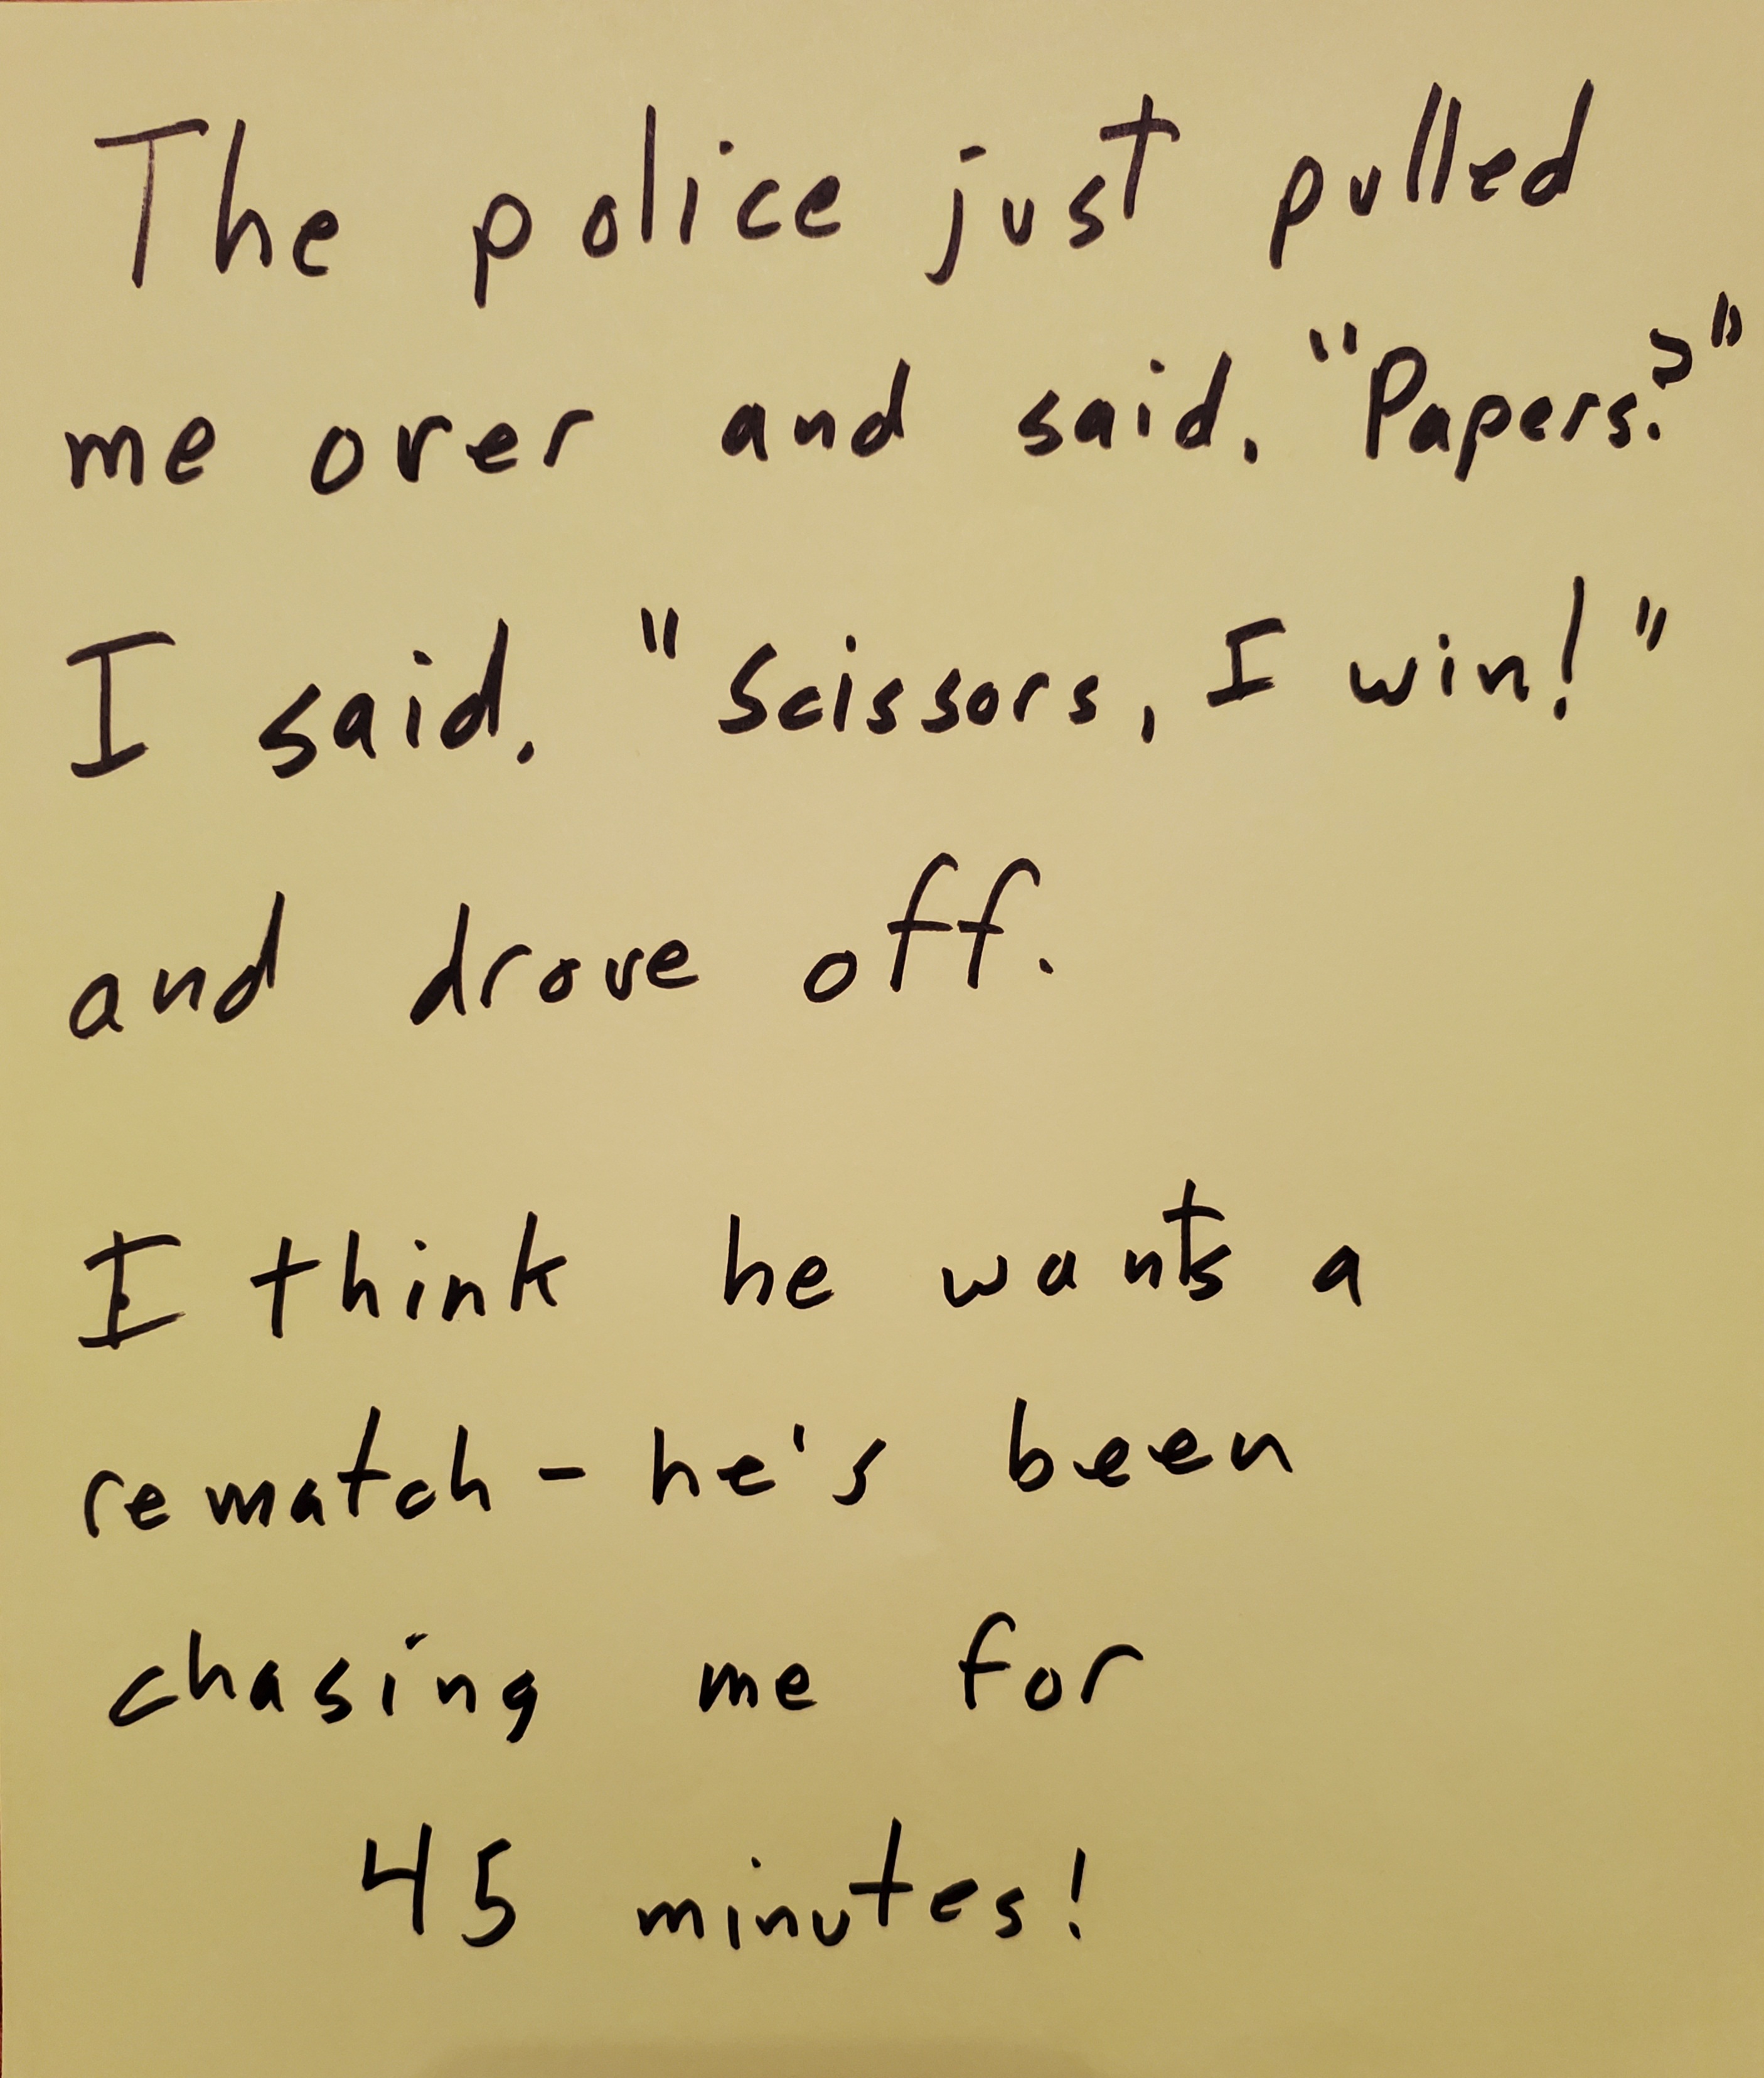 The police just pulled
me over and said, "Papers?"
I said, "Scissors, I win!"
and drove off.
I think he wants a
rematch - he's been
chasing me for
45 minutes!